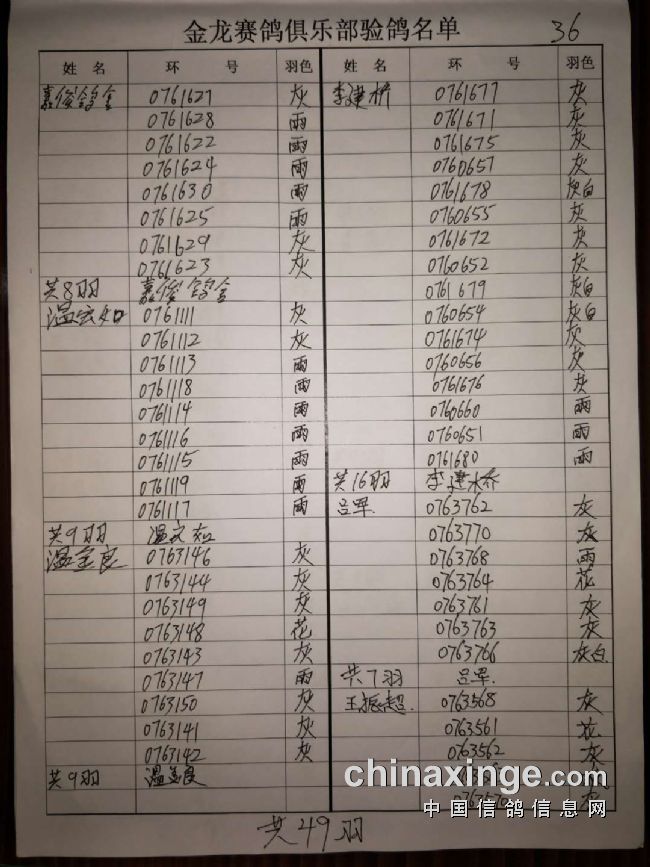 金龙赛鸽俱乐部验鸽名单 36
姓名 环号 羽色
嘉俊鸽舍 0761627 灰
0761628 雨
0761622 雨
0761624 雨
0761630 雨
0761625 雨
0761629 灰
0761623 灰
共8羽 嘉俊鸽舍
温宏如 0761111 灰
0761112 灰
0761113 雨
0761118 雨
0761114 雨
0761116 雨
0761115 雨
0761119 雨
0761117 雨
共9羽 温宏如
温金良 0763146 灰
0763144 灰
0763149 灰
0763148 花
0763143 灰
0763147 雨
0763150 灰
0763141 灰
0763142 灰
共9羽 温金良
姓名 环号 羽色
李建桥 0761677 灰
0761671 灰
0761675 灰
0760657 灰
0761678 灰白
0760655 灰
0761672 灰
0760652 灰
0761679 灰白
0760654 灰白
0761674 灰
0760656 灰
0761676 灰
0760660 雨
0760651 雨
0761680 雨
共16羽 李建桥
吕军 0763762 灰
0763770 灰
0763768 雨
0763764 花
0763761 灰
0763763 灰
0763766 灰白
共7羽 吕军
王振超 0763568 灰
0763561 花
0763562 灰
共49羽
chinaxinge.com
中国信鸽信息网